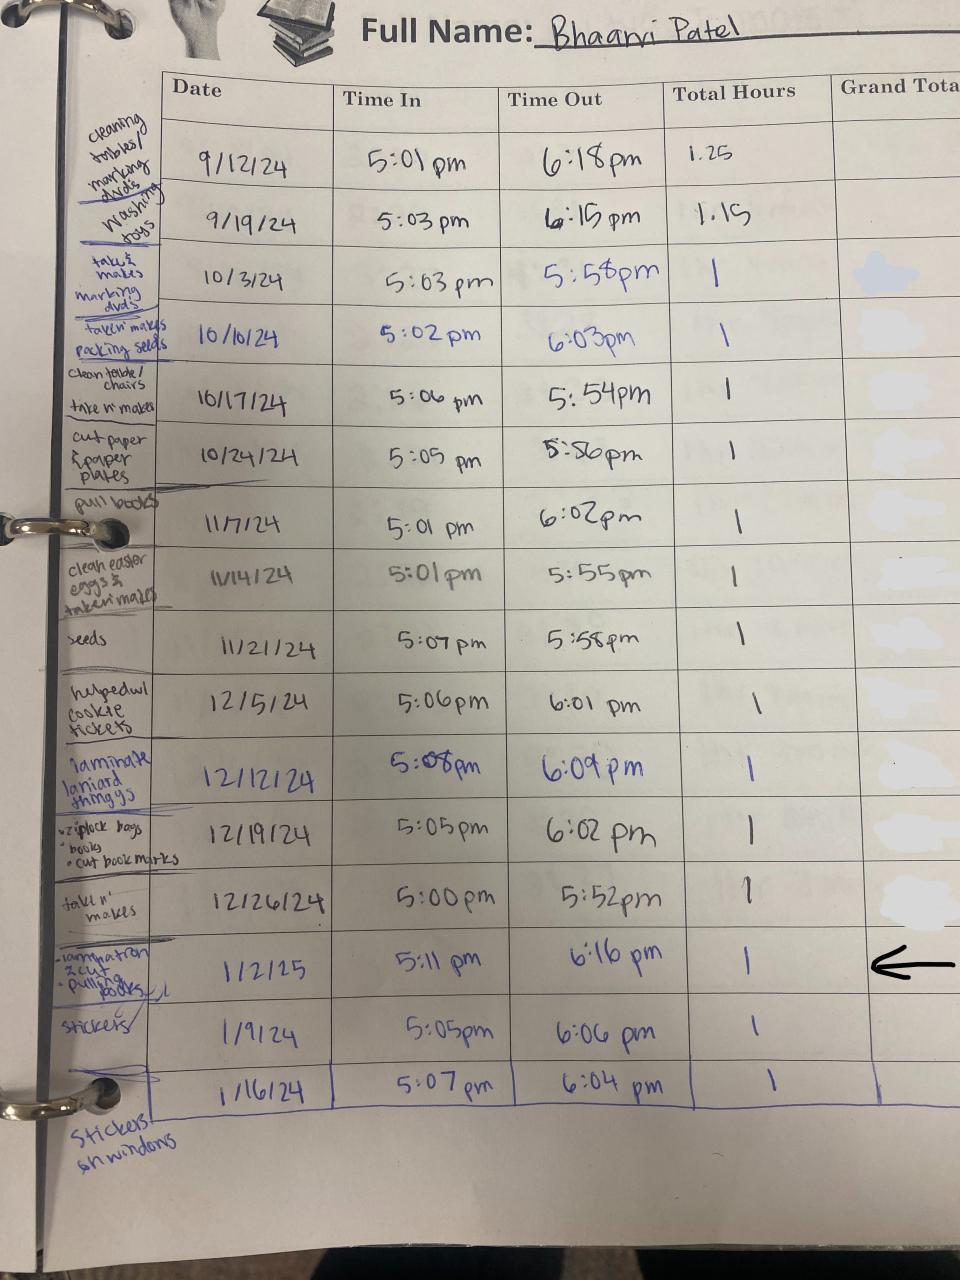 Full Name: Bhaanvi Patel
Date Time In Time Out Total Hours Grand Tota
cleaning
tables/
marking
dvd's
9/12/24 5:01 pm 6:18pm 1.25
washing
toys
9/19/24 5:03 pm 6:15 pm 1.15
take &
makes
marking
dvd's
10/3/24 5:03 pm 5:58pm 1
take n' makes
packing seeds
10/10/24 5:02 pm 6:03pm 1
clean table/
chairs
take n' makes
10/17/24 5:06 pm 5:54pm 1
cut paper
& paper
plates
10/24/24 5:05 pm 5:56pm 1
pull books
11/7/24 5:01 pm 6:02pm 1
clean easter
eggs &
take n' makes
11/14/24 5:01pm 5:55pm 1
seeds
11/21/24 5:07pm 5:58pm 1
helped w/
cookie
tickets
12/5/24 5:06pm 6:01 pm 1
laminate
laniard
thinggys
12/12/24 5:08pm 6:09pm 1
• ziplock bags
• books
• cut bookmarks
12/19/24 5:05pm 6:02 pm 1
take n'
makes
12/26/24 5:00pm 5:52pm 1
& cut
• pulling
books
1/2/25 5:11 pm 6:16 pm 1
stickers
1/9/24 5:05pm 6:06 pm 1
1/16/24 5:07 pm 6:04 pm 1
stickers
on windows